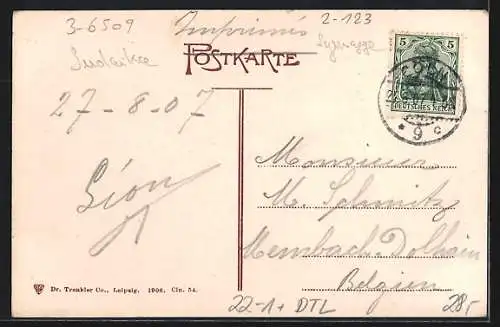 3-6509
Imprimés
2-123
Synagoge
Judaika
POSTKARTE
5 5
DEUTSCHES REICH
* 9 c
27-8-07
Léon
Monsieur
M. Schmitz
Membach-Dolhain
Belgien
Dr. Trenkler Co., Leipzig. 1906. Cln. 54.
22-1+ DTL
28,-